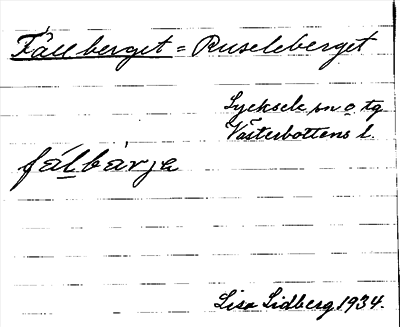 Fällberget = Ruseleberget
Lycksele sn o tg
Västerbottens l.
fälbärja
Lisa Lidberg 1934.